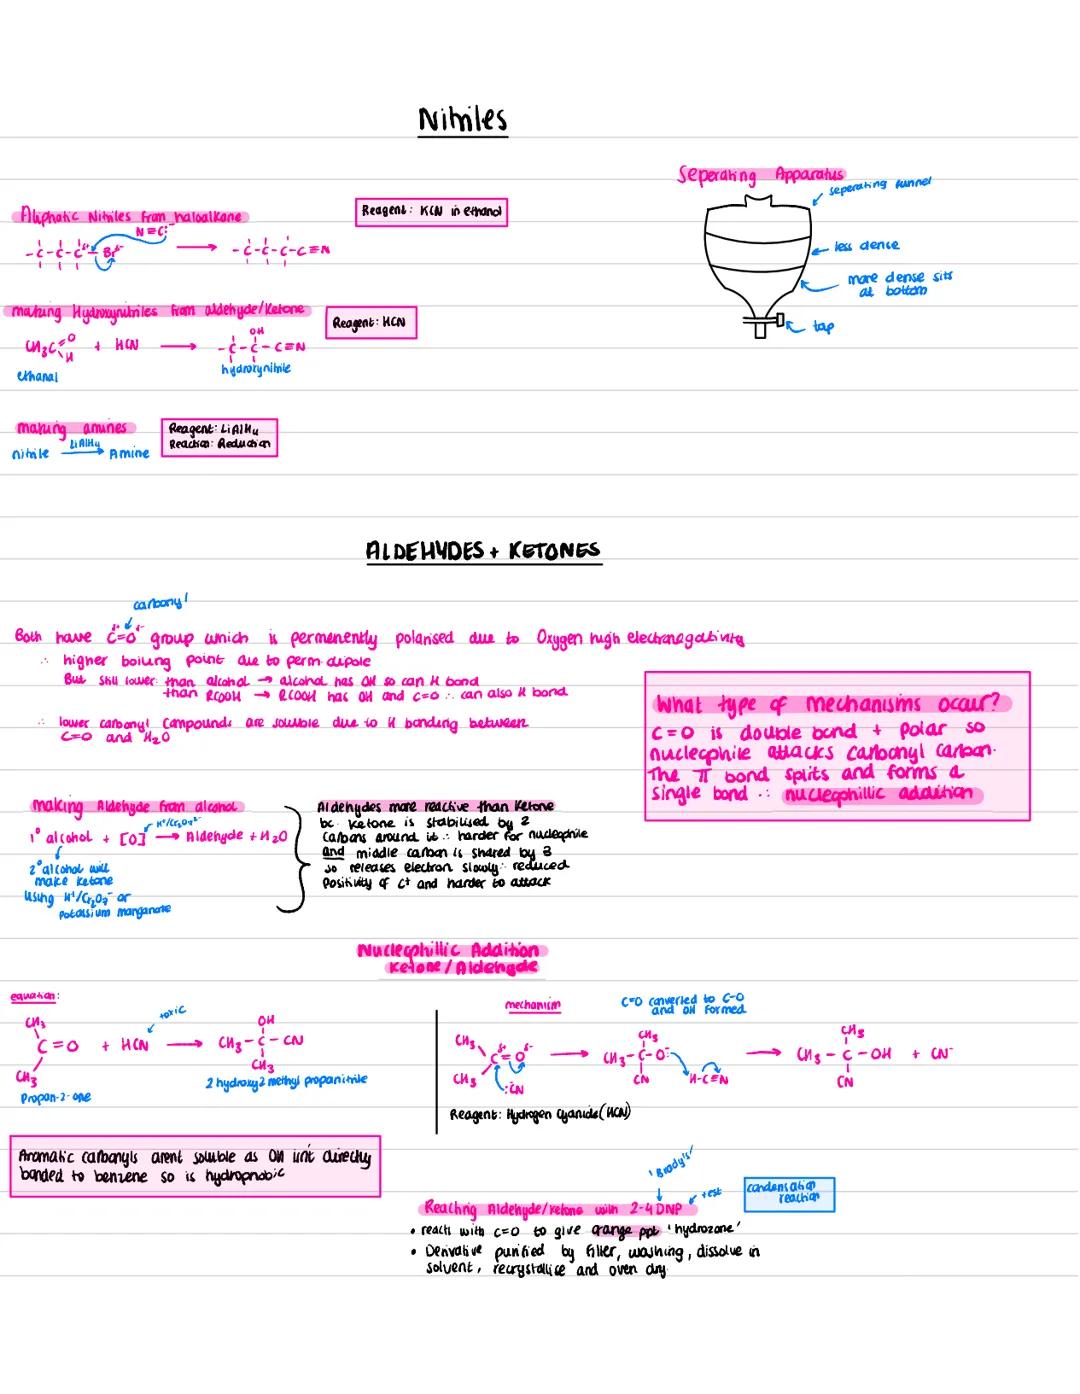 Nitriles
Seperating Apparatus
seperating funnel
less dense
more dense sits
at bottom
tap
Aliphatic Nitriles from haloalkane
Reagent: KCN in ethanol
N≡C:⁻
-C-C-Cδ+-Brδ- → -C-C-C-C≡N
making Hydroxynitriles from aldehyde/Ketone
Reagent: HCN
OH
CH₃C=O H + HCN → -C-C-C≡N
ethanal
hydroxynitrile
making amines
Reagent: LiAlH₄
Reaction: Reduction
nitrile LiAlH₄ → Amine
ALDEHYDES + KETONES
carbonyl
Both have Cδ+=Oδ- group which is permenently polarised due to Oxygen high electronegativity
∴ higher boiling point due to perm dipole
But still lower than alcohol → alcohol has OH so can H bond
than RCOOH → RCOOH has OH and C=O ∴ can also H bond
∴ lower carbonyl compounds are soluble due to H bonding between
C=O and H₂O
What type of mechanisms occur?
C=O is double bond + polar so
nucleophile attacks carbonyl carbon.
The π bond splits and forms a
single bond ∴ nucleophillic addition
making Aldehyde from alcohol
H⁺/Cr₂O₇²⁻
1° alcohol + [O] → Aldehyde + H₂O
2° alcohol will
make ketone
Using H⁺/Cr₂O₇⁻ or
potassium manganate
Aldehydes more reactive than Ketone
bc ketone is stabilised by 2
carbons around it ∴ harder for nucleophile
and middle carbon is shared by 3
so releases electron slowly ∴ reduced
positivity of C⁺ and harder to attack
Nucleophillic Addition
Ketone/Aldehyde
equation:
toxic
CH₃
C=O + HCN → CH₃-C-CN
OH
CH₃
CH₃
Propan-2-one
2 hydroxy 2 methyl propanitrile
mechanism
C=O converted to C-O
and OH formed
CH₃
Cδ+=Oδ- → CH₃-C-O:⁻ → CH₃-C-OH + CN⁻
CH₃
CH₃
CH₃
:CN
CN
H-C≡N
CN
Reagent: Hydrogen Cyanide (HCN)
Aromatic carbonyls arent soluble as OH isn't directly
bonded to benzene so is hydrophobic
'Brady's'
test
condensation
reaction
Reacting Aldehyde/ketone with 2-4 DNP
• reacts with C=O to give orange ppt 'hydrozone'
• Derivative purified by filter, washing, dissolve in
solvent, recrystallise and oven dry.